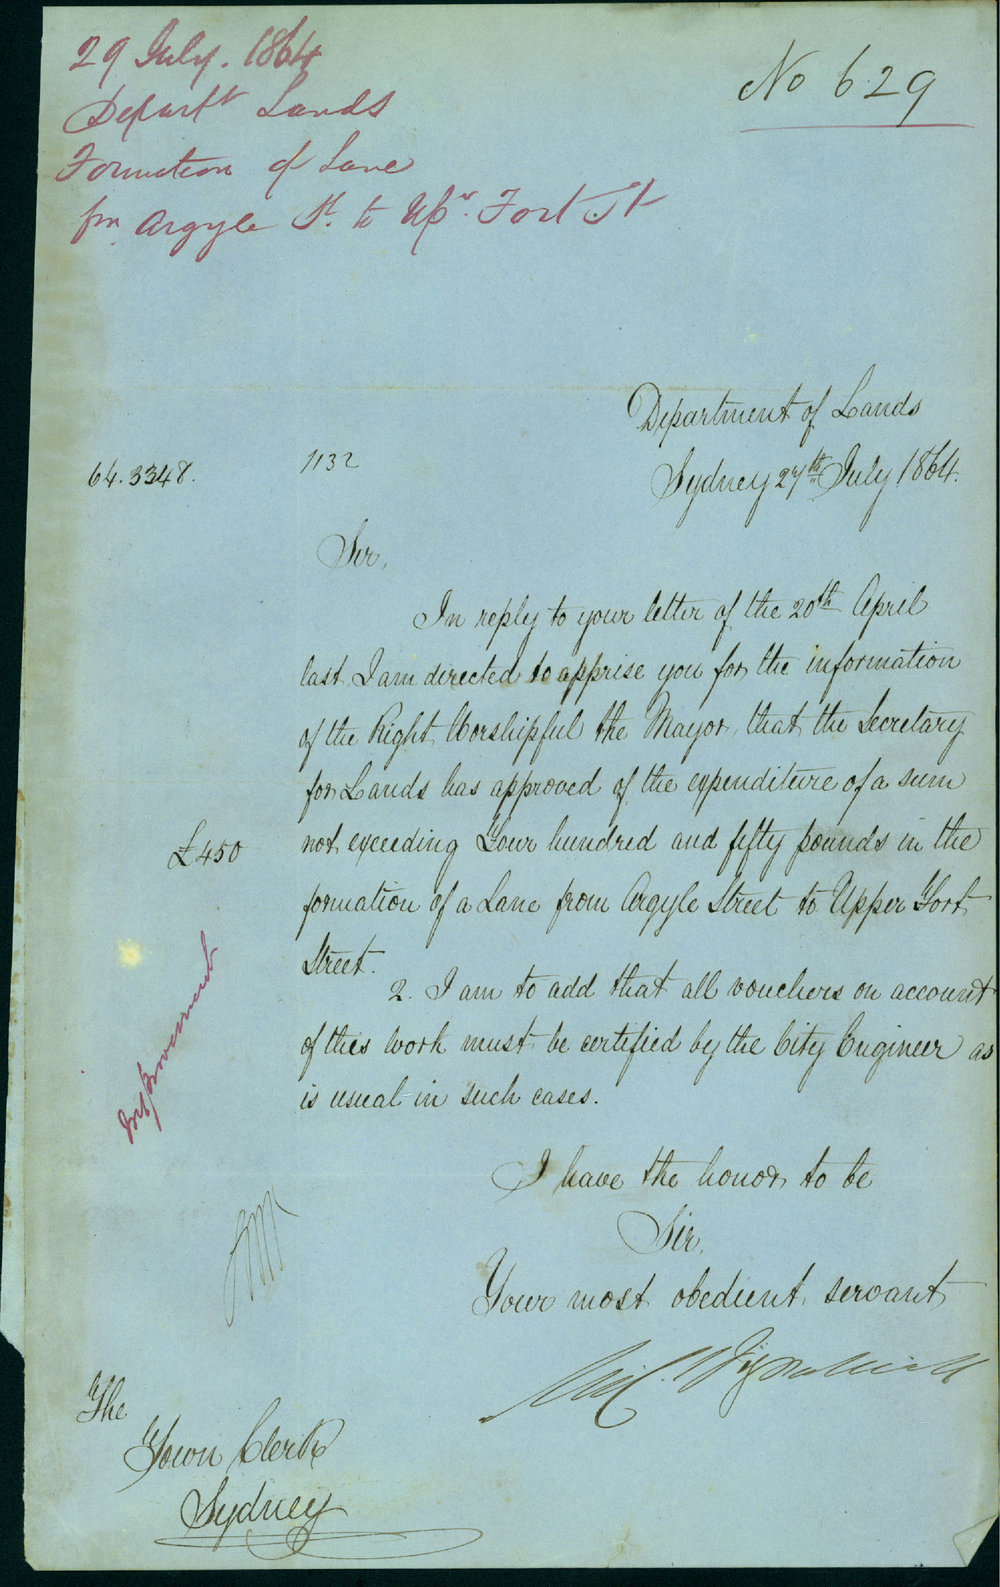 29 July. 1864
Departt Lands
Formation of Lane
fm Argyle St. to Upr. Fort St
No 629
Department of Lands
Sydney 27th July 1864.
64.3348.
1132
Sir,
In reply to your letter of the 20th April
last I am directed to apprise you for the information
of the Right Worshipful the Mayor, that the Secretary
for Lands has approved of the expenditure of a sum
not exceeding Four hundred and fifty pounds in the
£450
formation of a Lane from Argyle Street to Upper Fort
Street.
2. I am to add that all vouchers on account
of this work must be certified by the City Engineer as
is usual in such cases.
Improvement
I have the honor to be
Sir,
Your most obedient servant
The
Town Clerk
Sydney